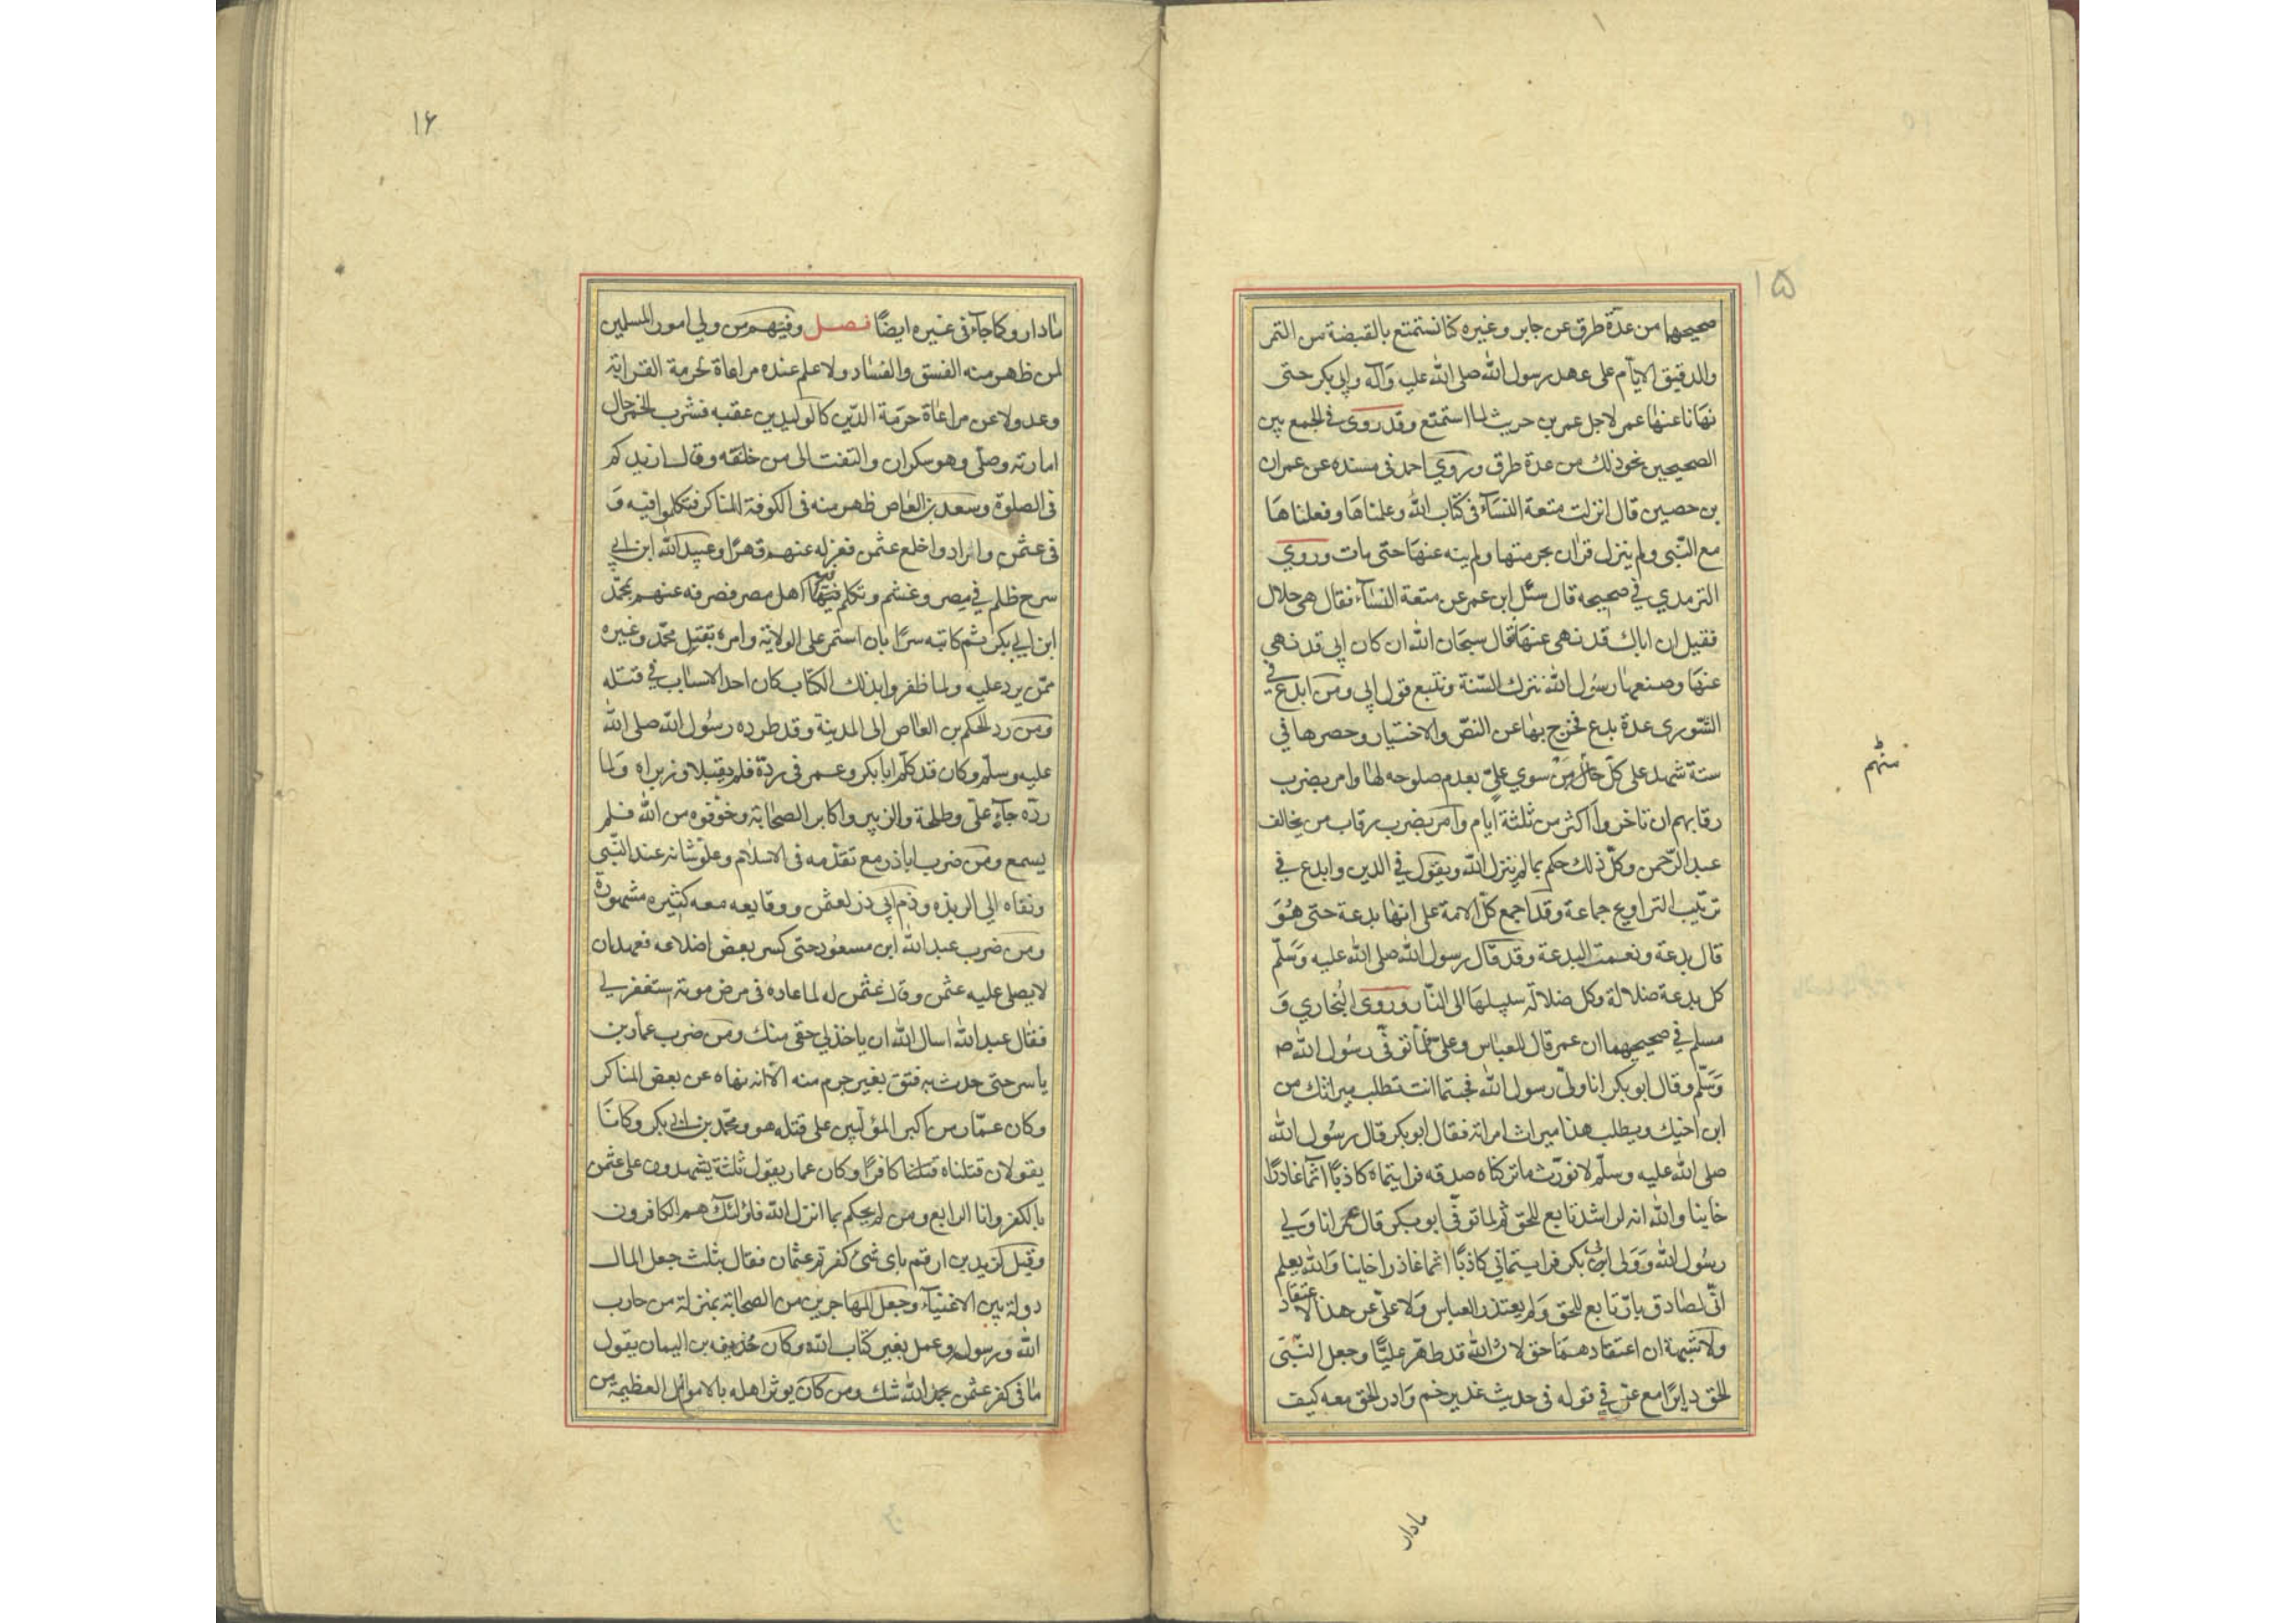 ۱۵
صحيحها من عدّة طرق عن جابر وغيره كنا نستمتع بالقبضة من التمر
والدقيق الايّام على عهد رسول الله صلى الله عليه وآله وابى بكر حتى
نهانا عنها عمر لاجل عمر بن حريث لما استمتع وقد روى في الجمع بين
الصحيحين نحو ذلك من عدة طرق وروي احمد فى مسنده عن عمران
بن حصين قال انزلت متعة النسآء فى كتاب الله وعلمناها وفعلناها
مع النّبى ولم ينزل قران بحرمتها ولم ينه عنها حتى مات وروي
الترمدي في صحيحه قال سئل ابن عمر عن متعة النسآء فقال هى حلال
فقيل ان اباك قد نهى عنها فقال سبحان الله ان كان ابى قد نهي
عنها وصنعها رسول الله نترك السّنة ونتبع قول ابى ومن ابدع في
الشورى عدة بدع فخرج بها عن النصّ والاختيار وحصرها في
ستة شهد على كلّ من سوي عليّ بعدم صلوحه لها وامر بضرب
رقابهم ان تاخروا اكثر من ثلثة ايام وامر بضرب رقاب من يخالف
عبد الرّحمن وكلّ ذلك حكم بما لم ينزل الله ويقول في الدين وابدع في
ترتيب التراويح جماعة وقد اجمع كلّ الامة على انها بدعة حتى هو
قال بدعة ونعمت البدعة وقد قال رسول الله صلى الله عليه وسلّم
كل بدعة ضلالة وكل ضلالة سبيلها الى النّار وروى البخاري و
مسلم في صحيحهما ان عمر قال للعباس وعلى لما توفّى رسول الله ص
وسلّم وقال ابو بكر انا وليّ رسول الله فجئتما انت تطلب ميراثك من
ابن اخيك ويطلب هذا ميراث امراته فقال ابو بكر قال رسول الله
صلى الله عليه وسلّم لا نورّث ما تركناه صدقه فرايتماه كاذبًا آثما غادرًا
خاينا والله انه لراشد تابع للحق ثم لما توفّى ابو بكر قال عمر انا ولي
رسول الله وولى ابى بكر فرايتمانى كاذبًا اثما غادرا خاينا والله يعلم
انّى لصادق بارّ تابع للحق ولم يعتذر العباس ولا علىّ عن هذا الاعتقاد
ولا شبهة ان اعتقادهما حق لان الله قد طهّر عليًّا وجعل النّبّى
الحق دايرًا مع على في قوله فى حديث غدير خم وادر الحق معه كيف
منهم
مادار
۱۶
مادار وكما جآء فى غيره ايضًا فصل وفيهم من ولي امور المسلمين
لمن ظهر منه الفسق والفساد ولا علم عنده مراعاة لحرمة القرابة
وعدولا عن مراعاة حرمة الدّين كالوليد بن عقبه فشرب الخمر حال
امارته وصلّى وهو سكران والتفت الى من خلفه وقال ازيدكم
فى الصلوة وسعد بن العاص ظهر منه فى الكوفة المناكر فتكلموا فيه و
فى عثمن وارادوا خلع عثمن فعزله عنهم قهرًا وعبيد الله ابن ابي
سرح ظلم في مصر وغشم وتكلم فيه اهل مصر فصرفه عنهم بمحمّد
ابن ابي بكر ثم كاتبه سرًا بان استمر على الولاية وامره بقتل محمّد وغيره
ممّن يرد عليه ولما ظفروا بذلك الكتاب كان احد الاسباب في قتله
ومن رد الحكم بن العاص الى المدينة وقد طرده رسول الله صلى الله
عليه وسلّم وكان قد كلّم ابا بكر وعمر فى ردّه فلم يقبلا وزبراه ولما
ردّه جآء علىّ وطلحة والزبير واكابر الصحابة وخوّفوه من الله فلم
يسمع ومن ضرب اباذر مع تقدّمه فى الاسلام وعلوّ شانه عند النّبى
ونفاه الي الربذه وذم ابى ذر لعثمن ووقايعه معه كثيره مشهورة
ومن ضرب عبد الله ابن مسعود حتى كسر بعض اضلاعه فعهد ان
لا يصلى عليه عثمن وقال عثمن له لما عاده فى مرض موته استغفر لي
فقال عبد الله اسال الله ان ياخذ لي حقى منك ومن ضرب عمار بن
ياسر حتى حدث به فتق بغير جرم منه الا انه نهاه عن بعض المناكر
وكان عمّار من اكبر المؤلّبين على قتله هو ومحمّد بن ابي بكر وكانا
يقولان قتلناه قتلنا كافرًا وكان عمار يقول ثلثة يشهدون على عثمن
بالكفر وانا الرابع ومن لم يحكم بما انزل الله فاولئك هم الكافرون
وقيل لزيد بن ارقم باي شئ كفرتم عثمان فقال بثلث جعل المال
دولة بين الاغنيآء وجعل المهاجرين من الصحابة بمنزلة من حارب
الله ورسوله وعمل بغير كتاب الله وكان حذيفه بن اليمان يقول
ما فى كفر عثمن بحمد الله شك ومن كان يوثر اهله بالاموال العظيمة من